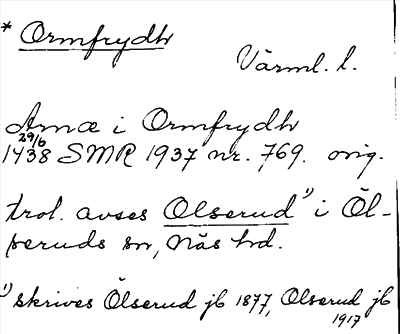 * Ormfrydh
Värml. l.
Arnæ i Ormfrydh
29/6
1438 SMR 1937 nr. 769. orig.
trol. avses Olserud 1) i Öl-
seruds sn, Näs hd.
1) skrives Ölserud jb 1877, Olserud jb
1917